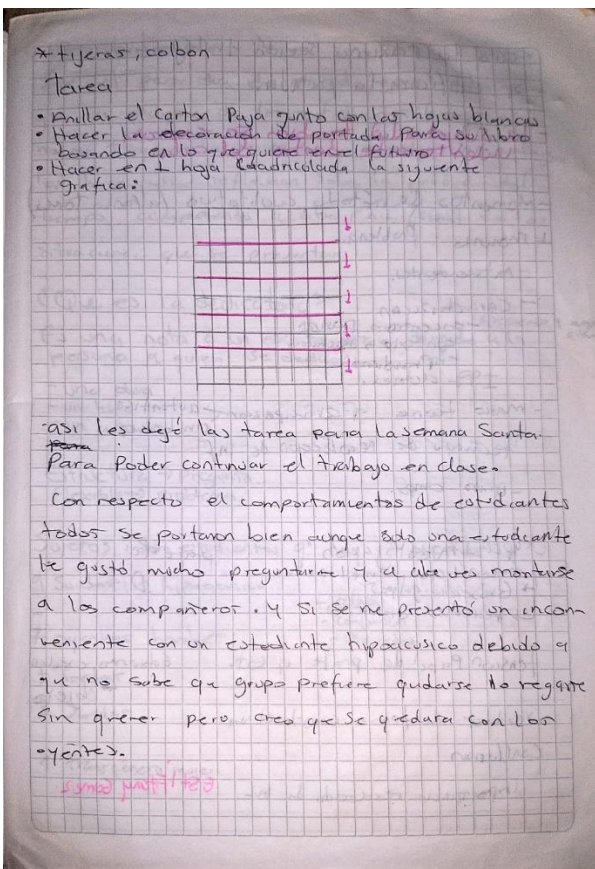 * tijeras, colbon
Tarea
• Anillar el carton Paja junto con las hojas blancas
• Hacer la decoración de portada para su libro
basando en lo que quiere en el futuro
• Hacer en 1 hoja Cuadricolada la siguiente
grafica:
1
1
1
1
1
-asi les dejé las tarea para la semana Santa.
Para Poder continuar el trabajo en clase.
Con respecto el comportamientos de estudiantes
todos se portaron bien aunque solo una estudiante
le gustó mucho preguntarme y a montarse
a los compañeros. Y si se me presentó un incon-
veniente con un estudiante hipoacusico debido a
qu no sabe qu grupo prefiere qudarse lo regañe
sin qrerer pero creo qe se quedara con los
oyentes.